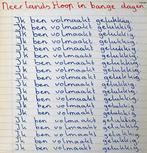 Neerlands Hoop in bange dagen
Ik ben volmaakt gelukkig
Ik ben volmaakt gelukkig
Ik ben volmaakt gelukkig
Ik ben volmaakt gelukkig
Ik ben volmaakt gelukkig
Ik ben volmaakt gelukkig
Ik ben volmaakt gelukkig
Ik ben volmaakt gelukkig
Ik ben volmaakt gelukkig
Ik ben volmaakt gelukkig
Ik ben volmaakt gelukkig
Ik ben volmaakt gelukkig
Ik ben volmaakt gelukkig
Ik ben volmaakt gelukkig
Ik ben volmaakt gelukkig